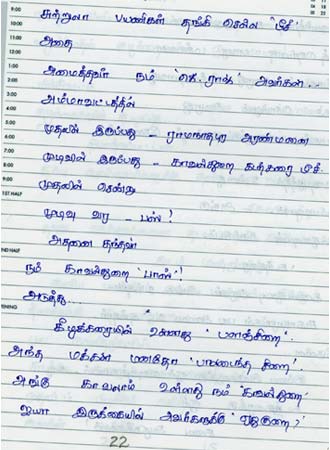 9:00 சுற்றுலா பயணிகள் தங்கி செல்ல 'பீச்'
10:00
11:00 அதை
12:00
1:00 அமைத்தவர் நம் 'கெ.ராஜ்' அவர்கள்..
2:00
3:00
4:00 அம்மாவட்டத்தில்
5:00
6:00 முதலில் இருப்பது - ராமநாதபுர அரண்மனை
7:00
8:00 முடிவில் இருப்பது - காவல்துறை கடற்கரை பீச்.
9:00 முதலில் சென்று
1ST HALF
முடிவு வரை - பஸ்!
அதனை தந்தவர்
2ND HALF
நம் காவல்துறை 'பாஸ்'!
அடுத்து...
EVENING
கீழக்கரையில் உள்ளது 'பனஞ்சிறை'.
அந்த மக்கள் மனதோ
அங்கு காவலாய் உள்ளது நம் 'காவல்துறை'
ஐயா இருக்கையில் அவர்களுக்கு ஏதுகுறை?
22